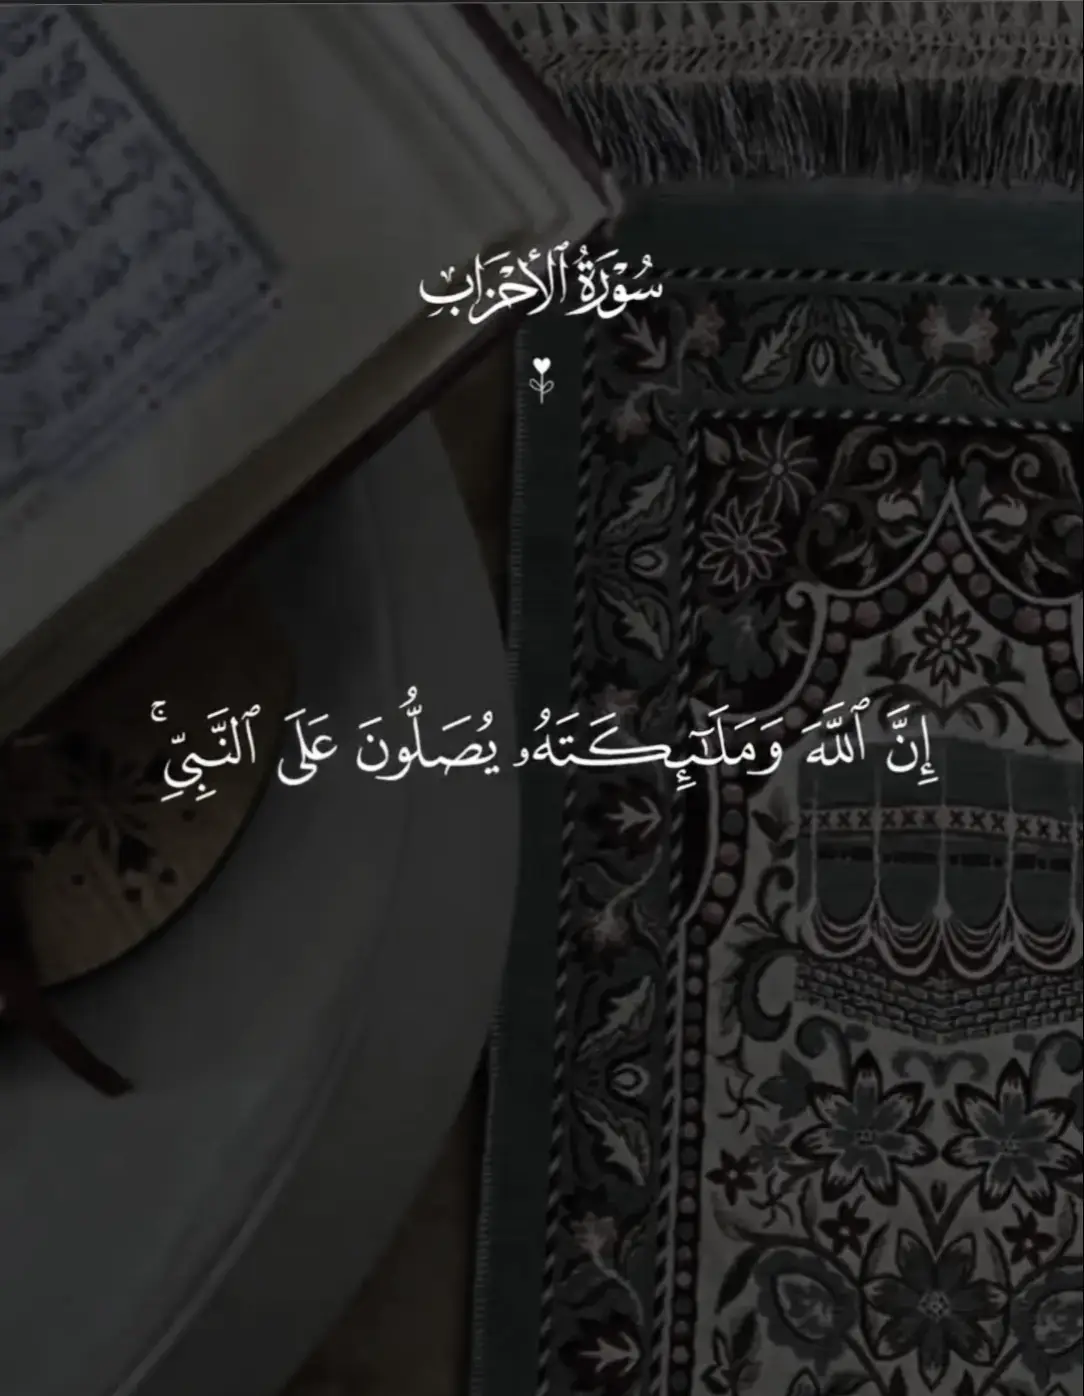 سُوْرَةُ ٱلأَحْزَابِ
إِنَّ ٱللَّهَ وَمَلَـٰٓئِكَتَهُۥ يُصَلُّونَ عَلَى ٱلنَّبِيِّۚ